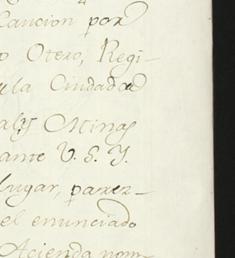 Caucion por
o Otero, Regi-
la Ciudad de
ales Minas
ante V. S. Y.
Lugar, parez-
el enunciado
Acienda nom-